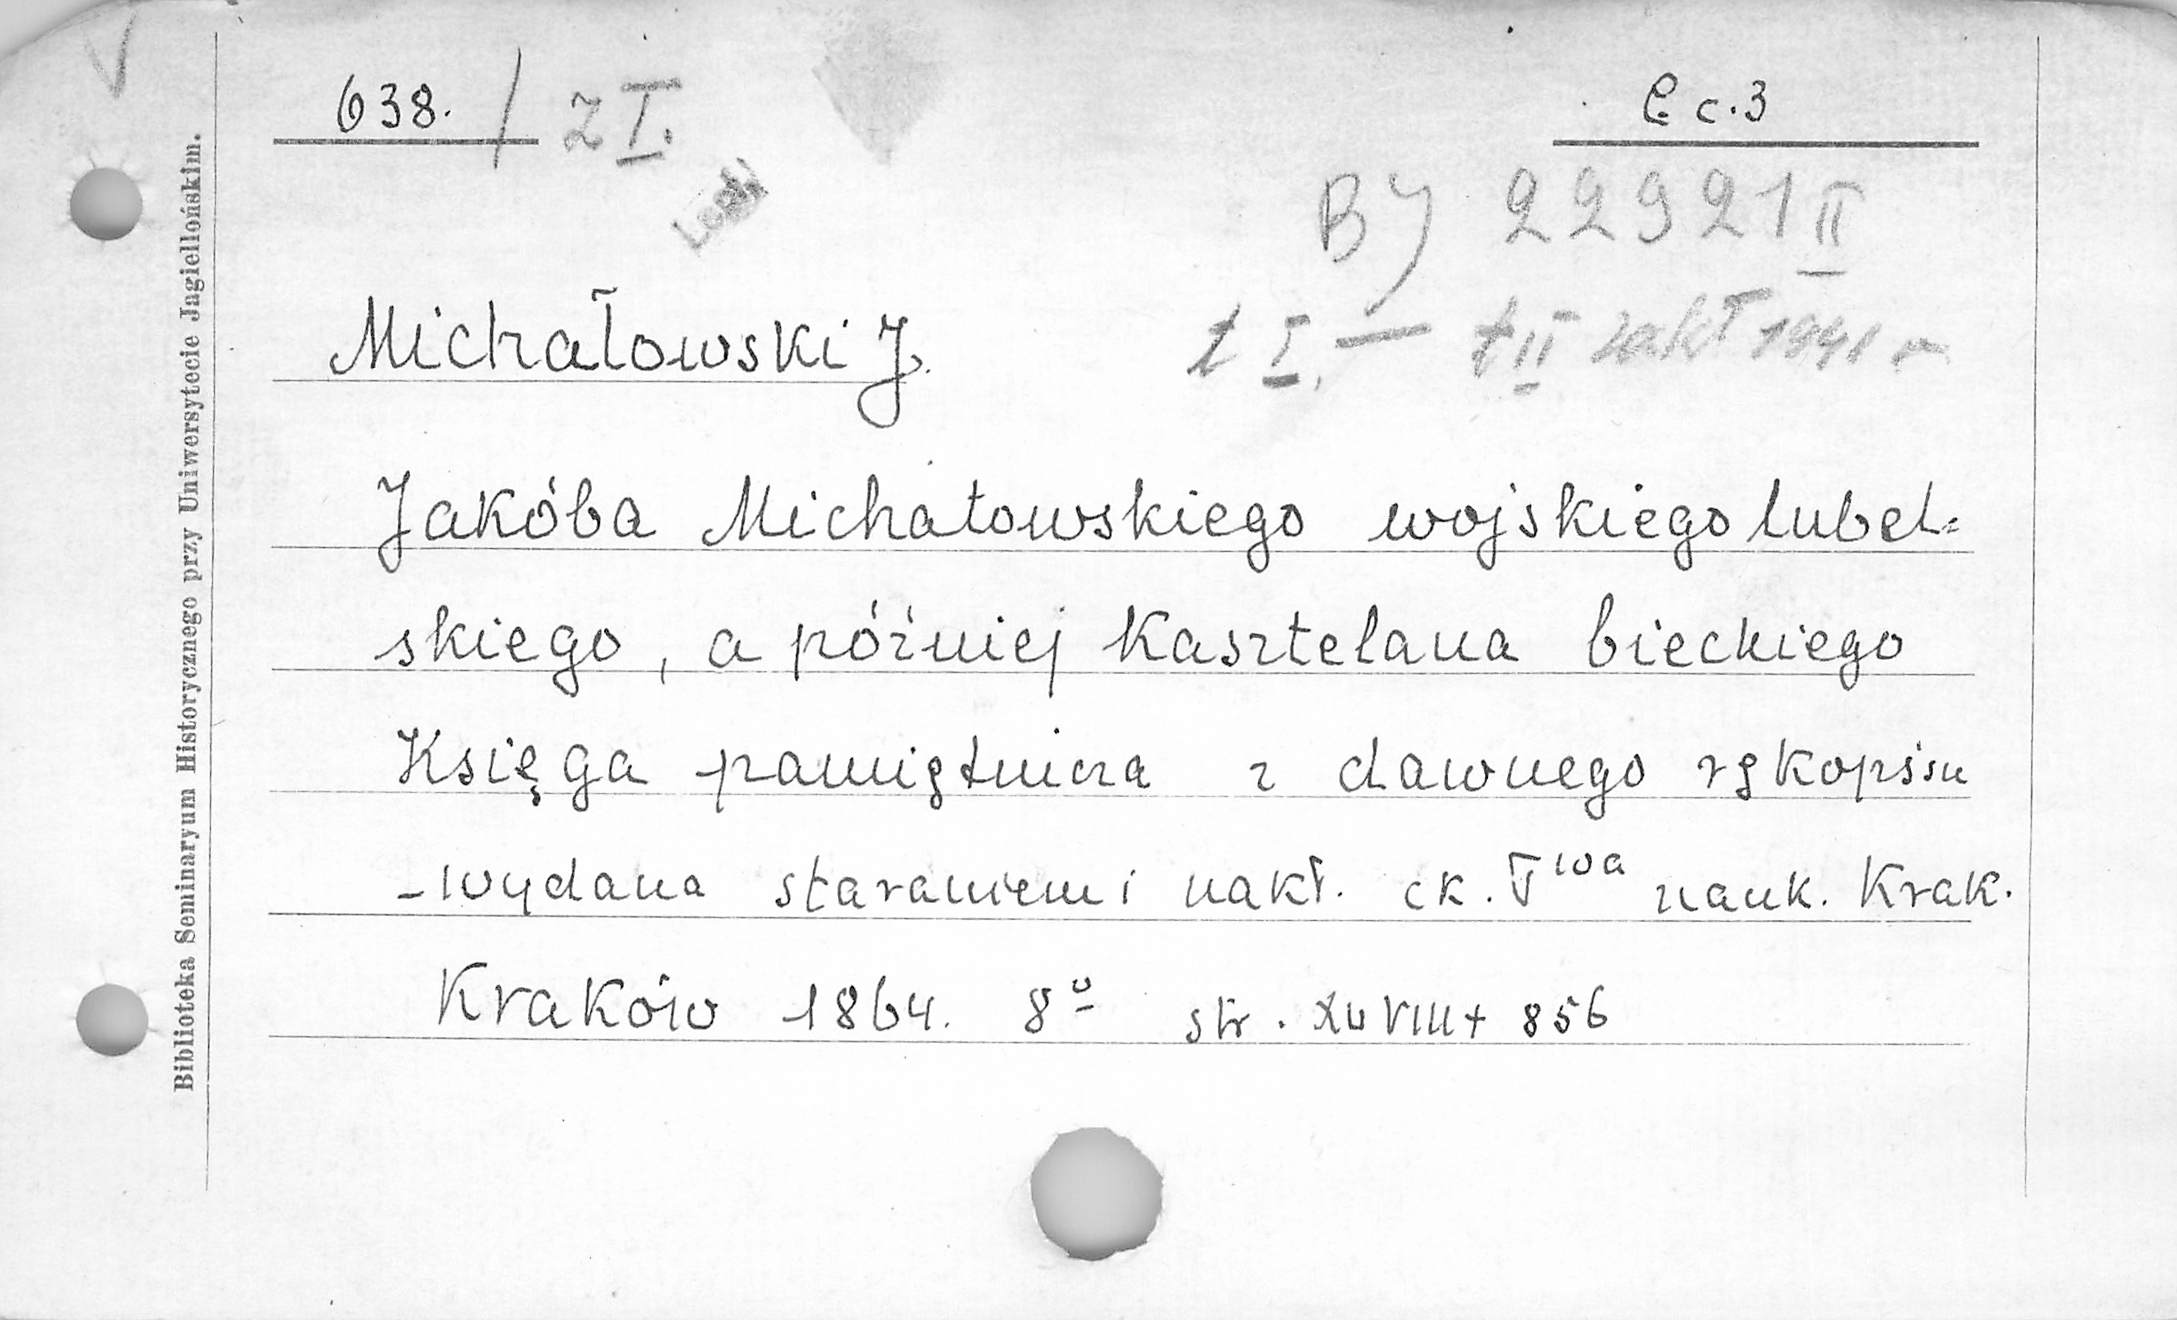 V
638. / z I.
C c.3
B) 22921 II
Michałowski J.
t I. — t II zakł 1941 r
Jakóba Michałowskiego wojskiego lubel-
skiego, a później Kasztelana bieckiego
Księga pamiętnicza z dawnego rękopisu
wydana staraniem i nakł. ck. Twa nauk. Krak.
Kraków 1864. 8o str. XLVIII + 856
Biblioteka Seminaryum Historycznego przy Uniwersytecie Jagiellońskim.